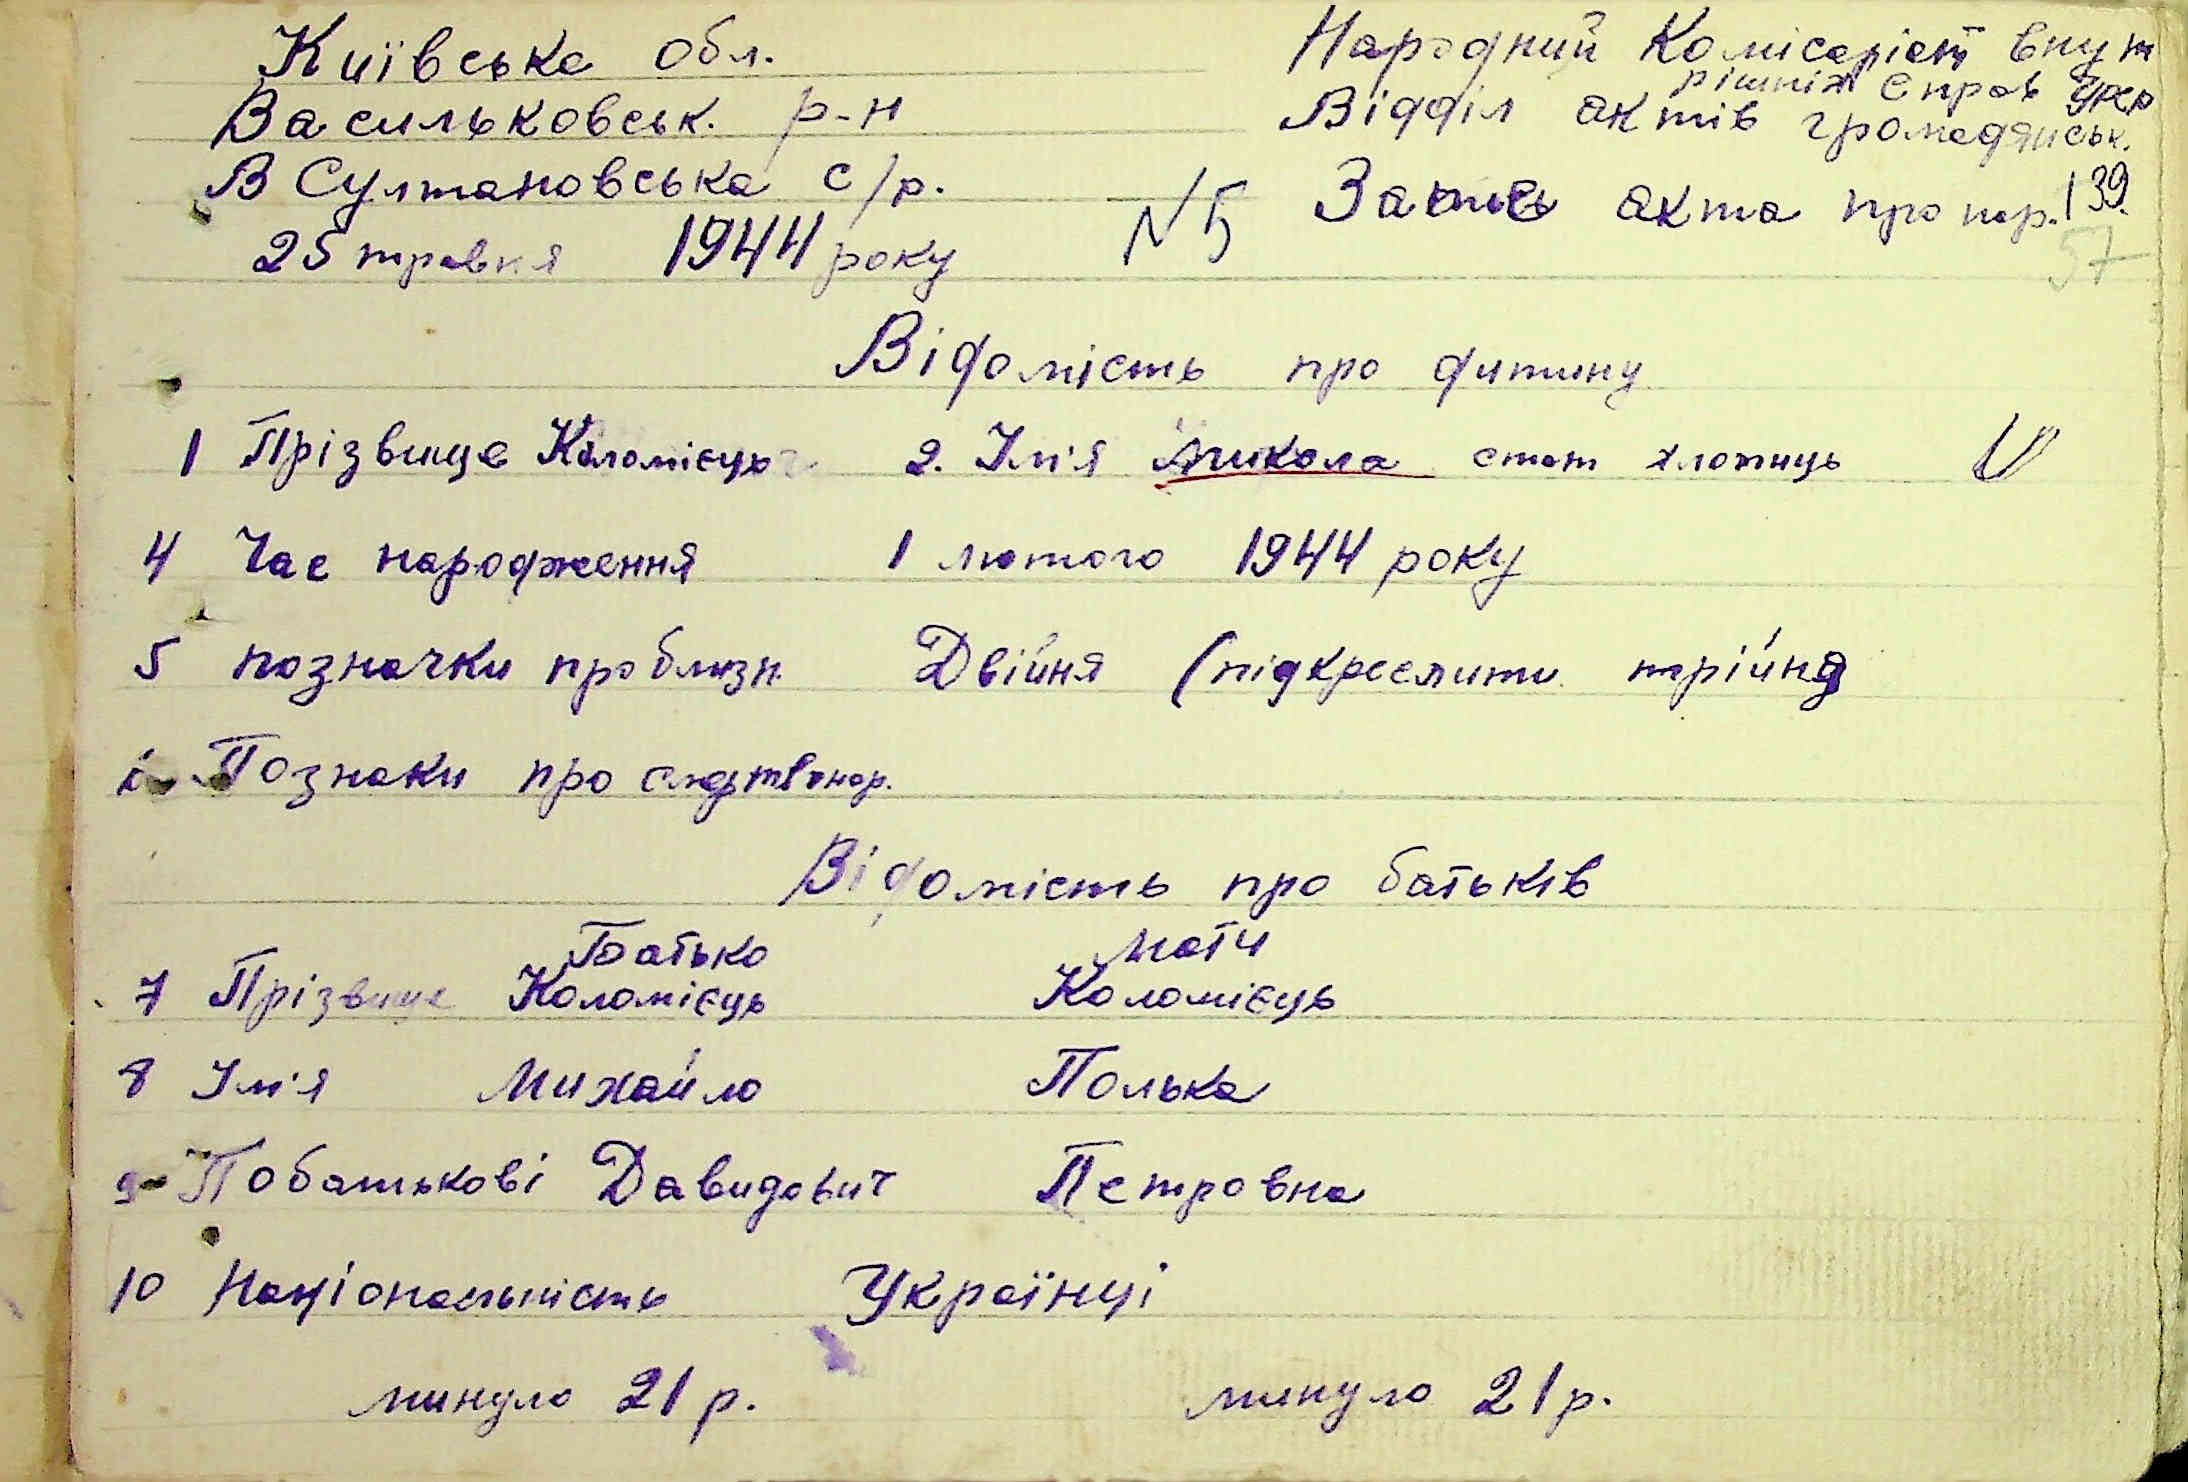 Київська обл.
Васильковськ. р-н
В Султановська с/р.
25 травня 1944 року
Народний Комісаріат внут
рішніх Справ УРСР
Відділ актів громадянськ.
№ 5 Запись акта про нар. 139.
57
Відомість про дитину
1 Прізвище Коломієць 2. Імʼя Микола стат хлопиць
4 Час народження 1 лютого 1944 року
5 позначки про близн. Двійня (підкреслити трійня
6 Познаки про
Відомість про батьків
Батько Мати
7 Прізвище Коломієць Коломієць
8 Імʼя Михайло Полька
9 Побатькові Давидович Петровна
10 Національність Українці
минуло 21 р. минуло 21 р.